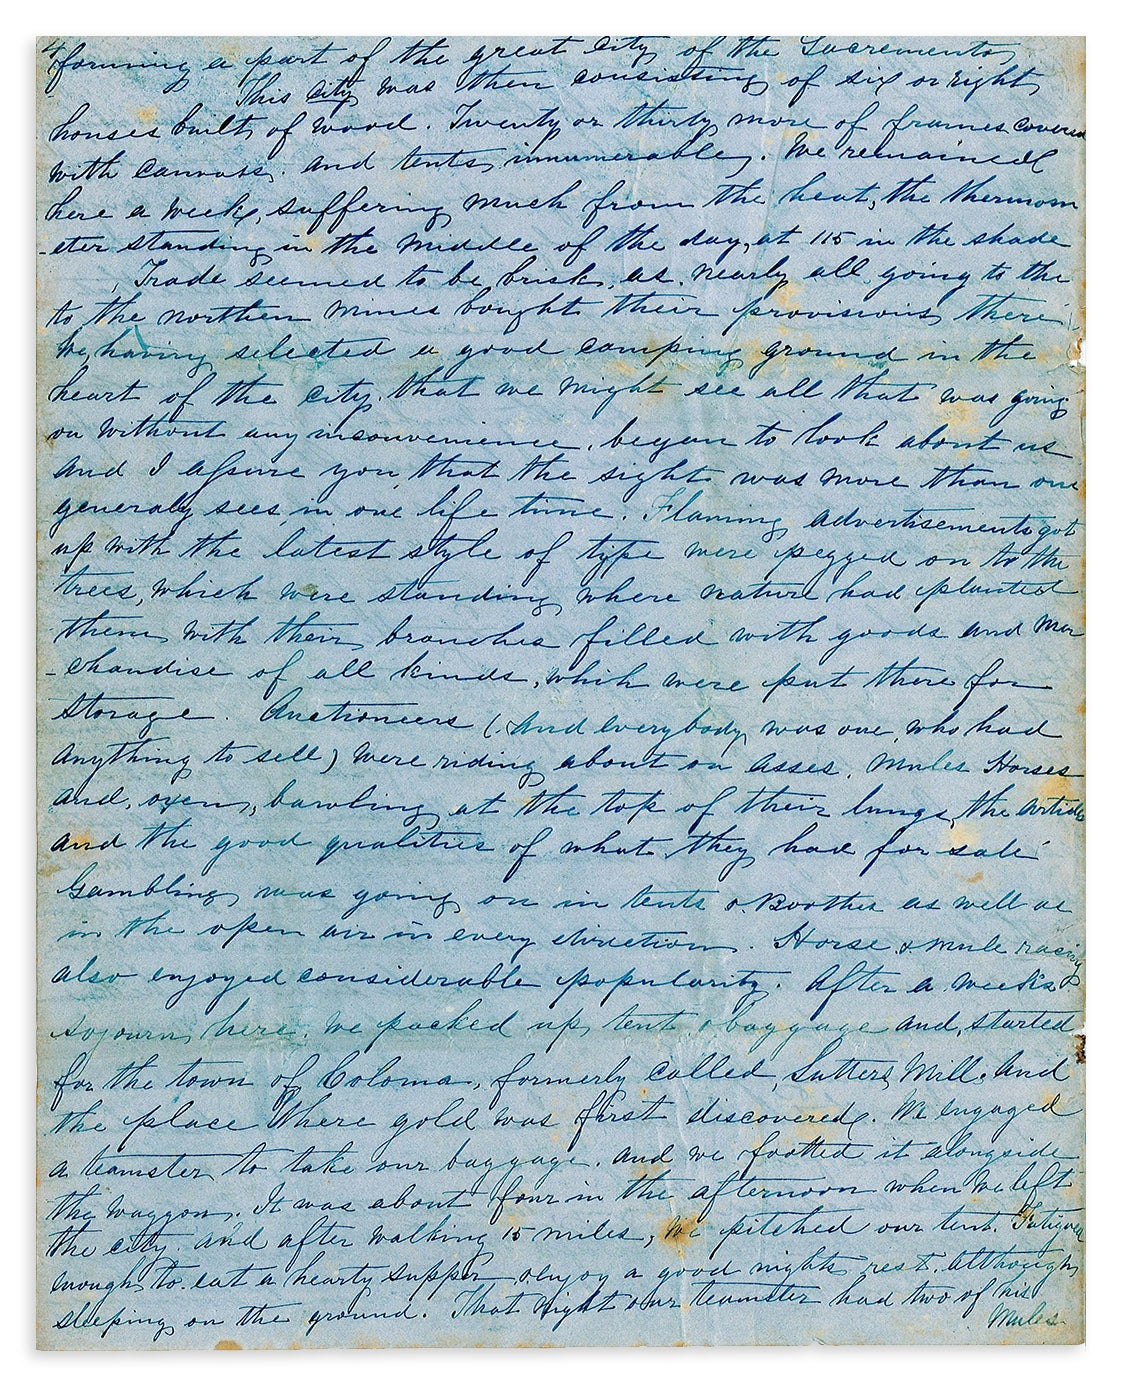 4
forming a part of the great City of the Sacremento,
This city was then consisting of six or eight
houses built of wood. Twenty or thirty more of frames covered
with canvass. and tents innumerable. We remained
here a week, suffering much from the heat, the thermom
-eter standing in the middle of the day, at 115 in the shade
Trade seemed to be brisk, as nearly all going to the
to the northen mines bought their provisions there
We having selected a good camping ground in the
heart of the city, that we might see all that was going
on without any inconvenience, began to look about us
and I assure you, that the sight was more than one
generaly sees in one life time. Flaming advertisements got
up with the latest style of type were pegged on to the
trees, which were standing where nature had planted
them, with their branches filled with goods and mer
-chandise of all kinds, which were put there for
storage. Auctioneers (and everybody was one, who had
anything to sell) were riding about on asses, mules Horses
and, oxen, bawling at the top of their lungs, the article
and the good qualities of what they had for sale
Gambling was going on in tents & Booths as well as
in the open air in every direction. Horse & mule racing
also enjoyed considerable popularity. After a weeks
sojourn here, we packed up tent & baggage and, started
for the town of Coloma, formerly called, Sutters Mill. And
the place where gold was first discovered. We engaged
a teamster to take our baggage. and we footted it alongside
the waggon. It was about four in the afternoon when we left
the city. and after walking 15 miles, we pitched our tent. Fatigued
enough to eat a hearty supper & enjoy a good nights rest. although
sleeping on the ground. That Night our teamster had two of his
Mules